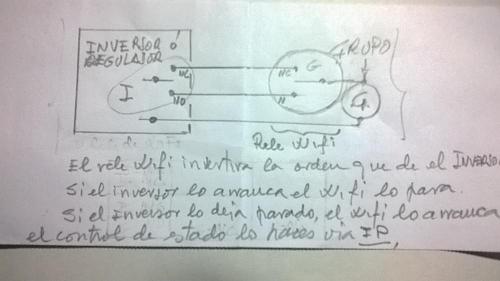 INVERSOR
REGULADOR
GRUPO
NC
NC
G
I
NO
N
Rele Wifi
El rele Wifi invertira la orden que de el INVERSOR
Si el inversor lo arranca el Wifi lo para.
Si el Inversor lo deja parado, el Wifi lo arranca
el control de estado lo haces via IP,